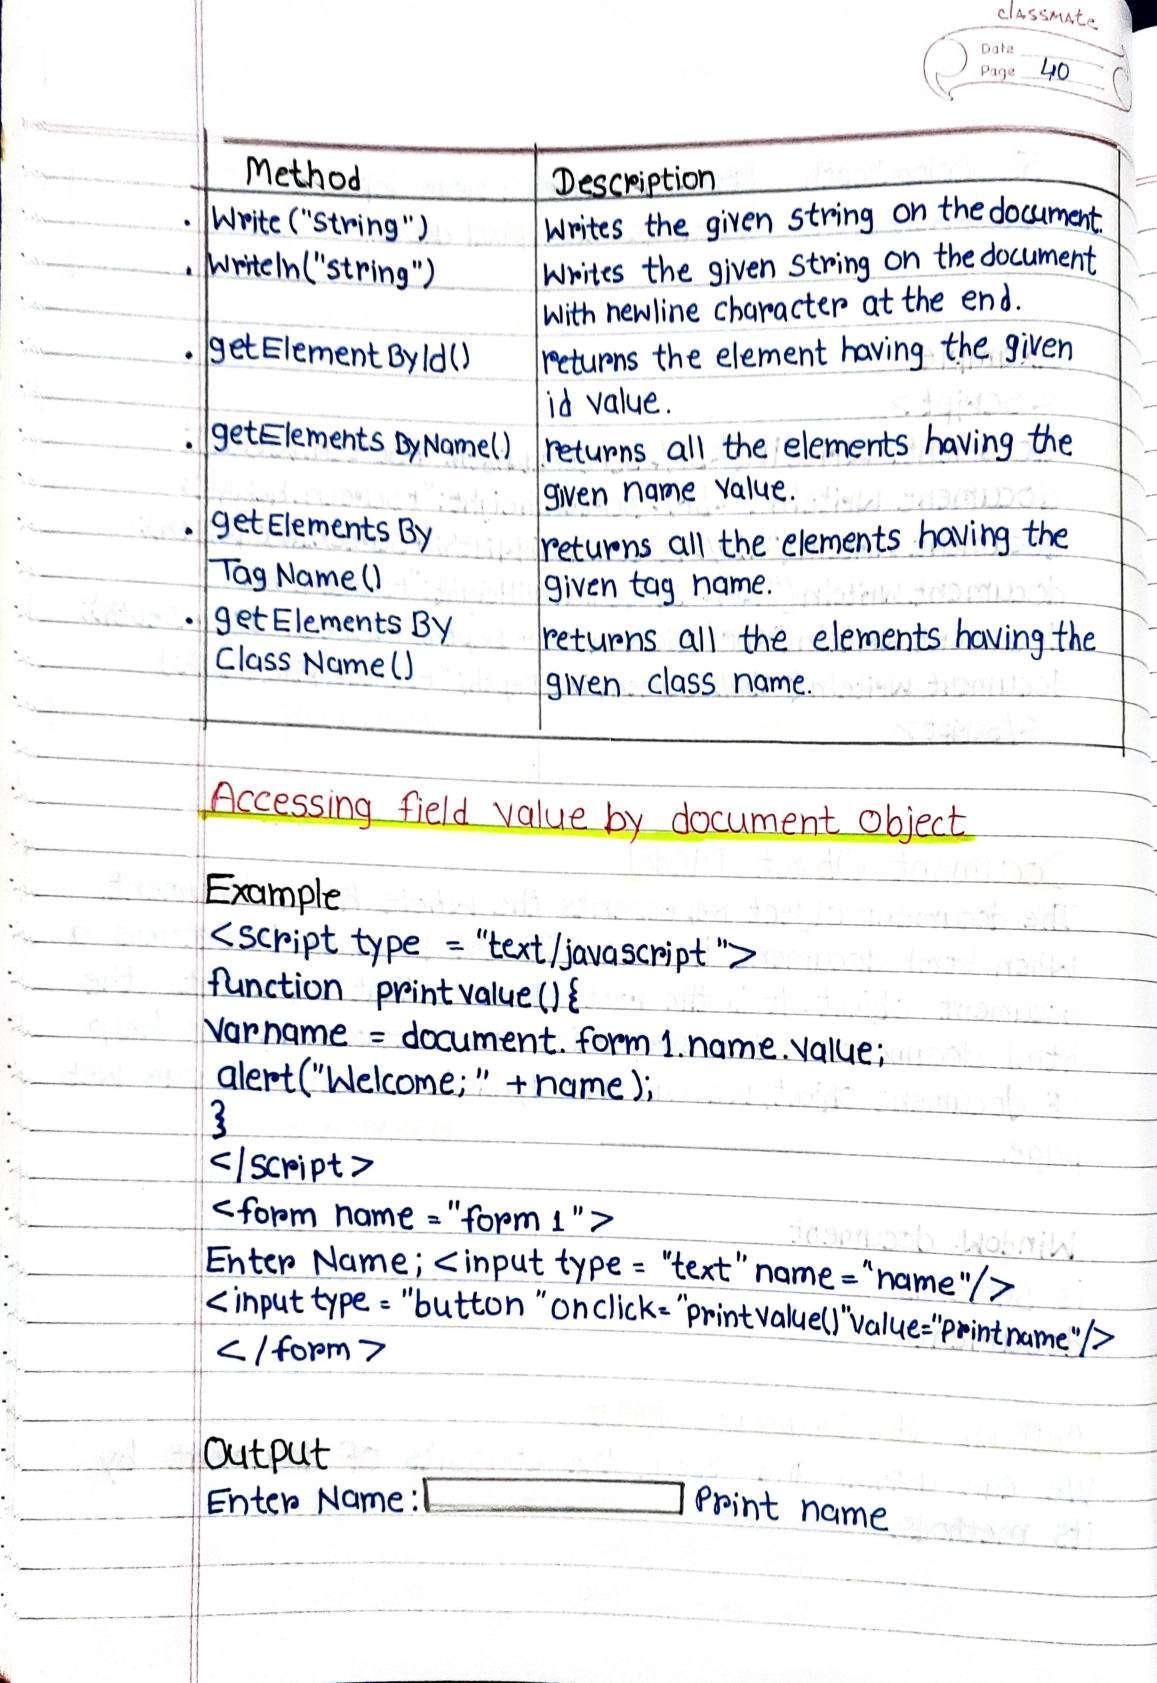 classmate
Date
Page 40
Method Description
. Write ("String") Writes the given string on the document.
. Writeln("string") Writes the given String on the document
With newline character at the end.
. getElement ById() returns the element having the given
id value.
. getElements ByName() returns all the elements having the
given name value.
. getElements By returns all the elements having the
Tag Name() given tag name.
. getElements By returns all the elements having the
Class Name() given class name.
Accessing field value by document object
Example
<script type = "text/javascript">
function printvalue(){
Varname = document. form 1.name.value;
alert("Welcome;" +name);
}
</script>
<form name ="form 1">
Enter Name; <input type = "text" name = "name"/>
<input type = "button "onclick= "printvalue()"value="printname"/>
</form>
Output
Enter Name: Print name